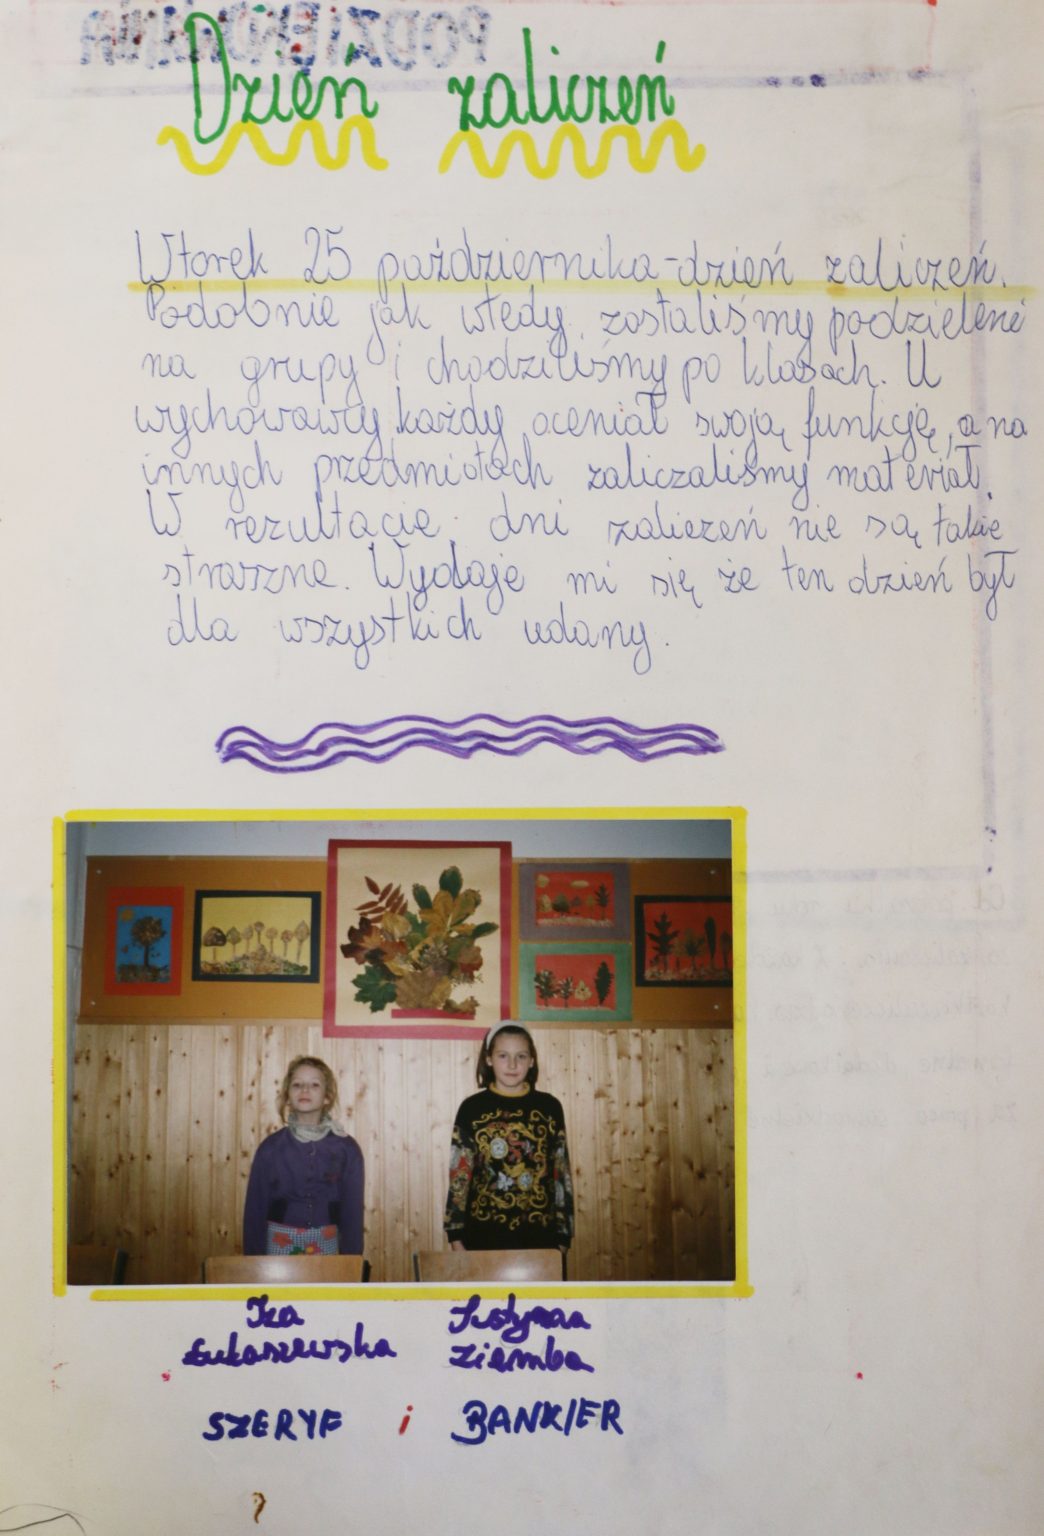 PODZIĘKOWANIA
Dzień zaliczeń
Wtorek 25 października - dzień zaliczeń.
Podobnie jak wtedy zostaliśmy podzieleni
na grupy i chodziliśmy po klasach. U
wychowawcy każdy oceniał swoją funkcję, a na
innych przedmiotach zaliczaliśmy materiał.
W rezultacie dni zaliczeń nie są takie
straszne. Wydaje mi się że ten dzień był
dla wszystkich udany.
Iza
Łukaszewska
Justyna
Ziemba
SZERYF i BANKIER